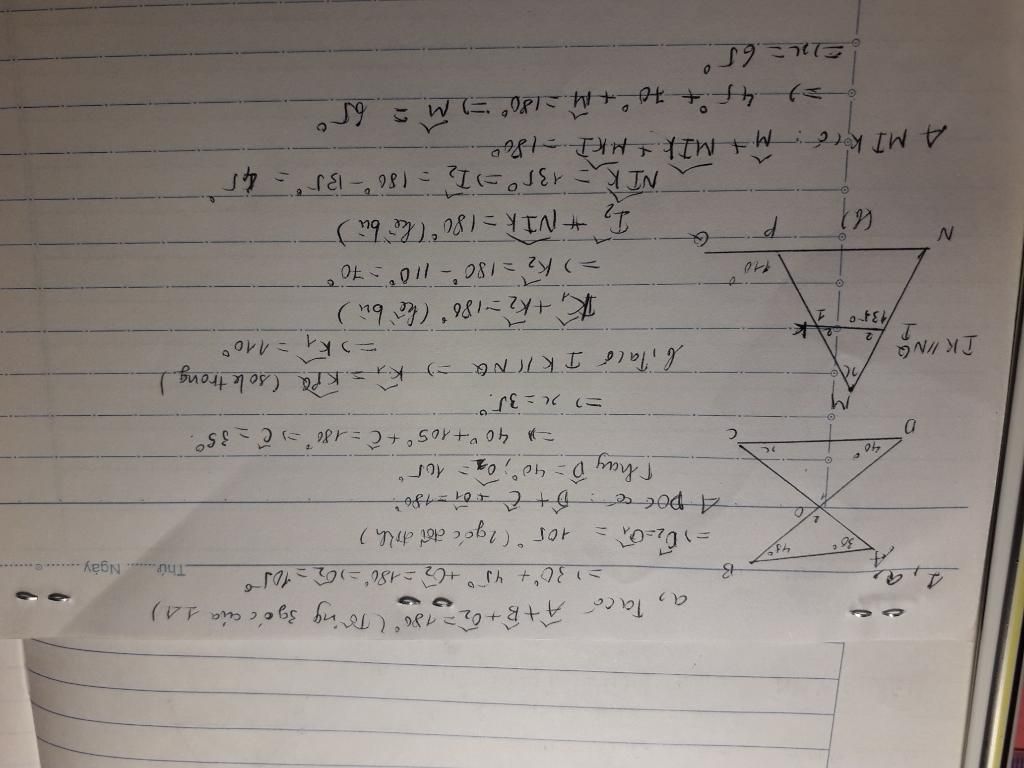 Thứ......... Ngày .............
1, a,
a, Ta có
Â + B̂ + Ô₂ = 180° (Tổng 3 góc của 1 Δ)
=> 30° + 45° + Ô₂ = 180° => Ô₂ = 105°
=> Ô₂ = Ô₁ = 105° (2 góc đối đỉnh)
Δ DOC có: D̂ + Ĉ + Ô₁ = 180°
Thay D̂ = 40°; Ô₁ = 105°
=> 40° + 105° + Ĉ = 180° => Ĉ = 35°
=> x = 35°.
b, Ta có IK // NQ => K̂₁ = KPQ (so le trong)
=> K̂₁ = 110°
K̂₁ + K̂₂ = 180° (kề bù)
=> K̂₂ = 180° - 110° = 70°
Î₂ + NIK = 180° (kề bù)
NIK = 135° => Î₂ = 180° - 135° = 45°
Δ MIK có: M̂ + MIK + MKI = 180°
=> 45° + 70° + M̂ = 180° => M̂ = 65°
=> x = 65°
A
B
30°
45°
2
O
40°
x
D
C
M
x
IK // NQ
I
2
2
K
135°
1
110°
N
P
Q
(b)